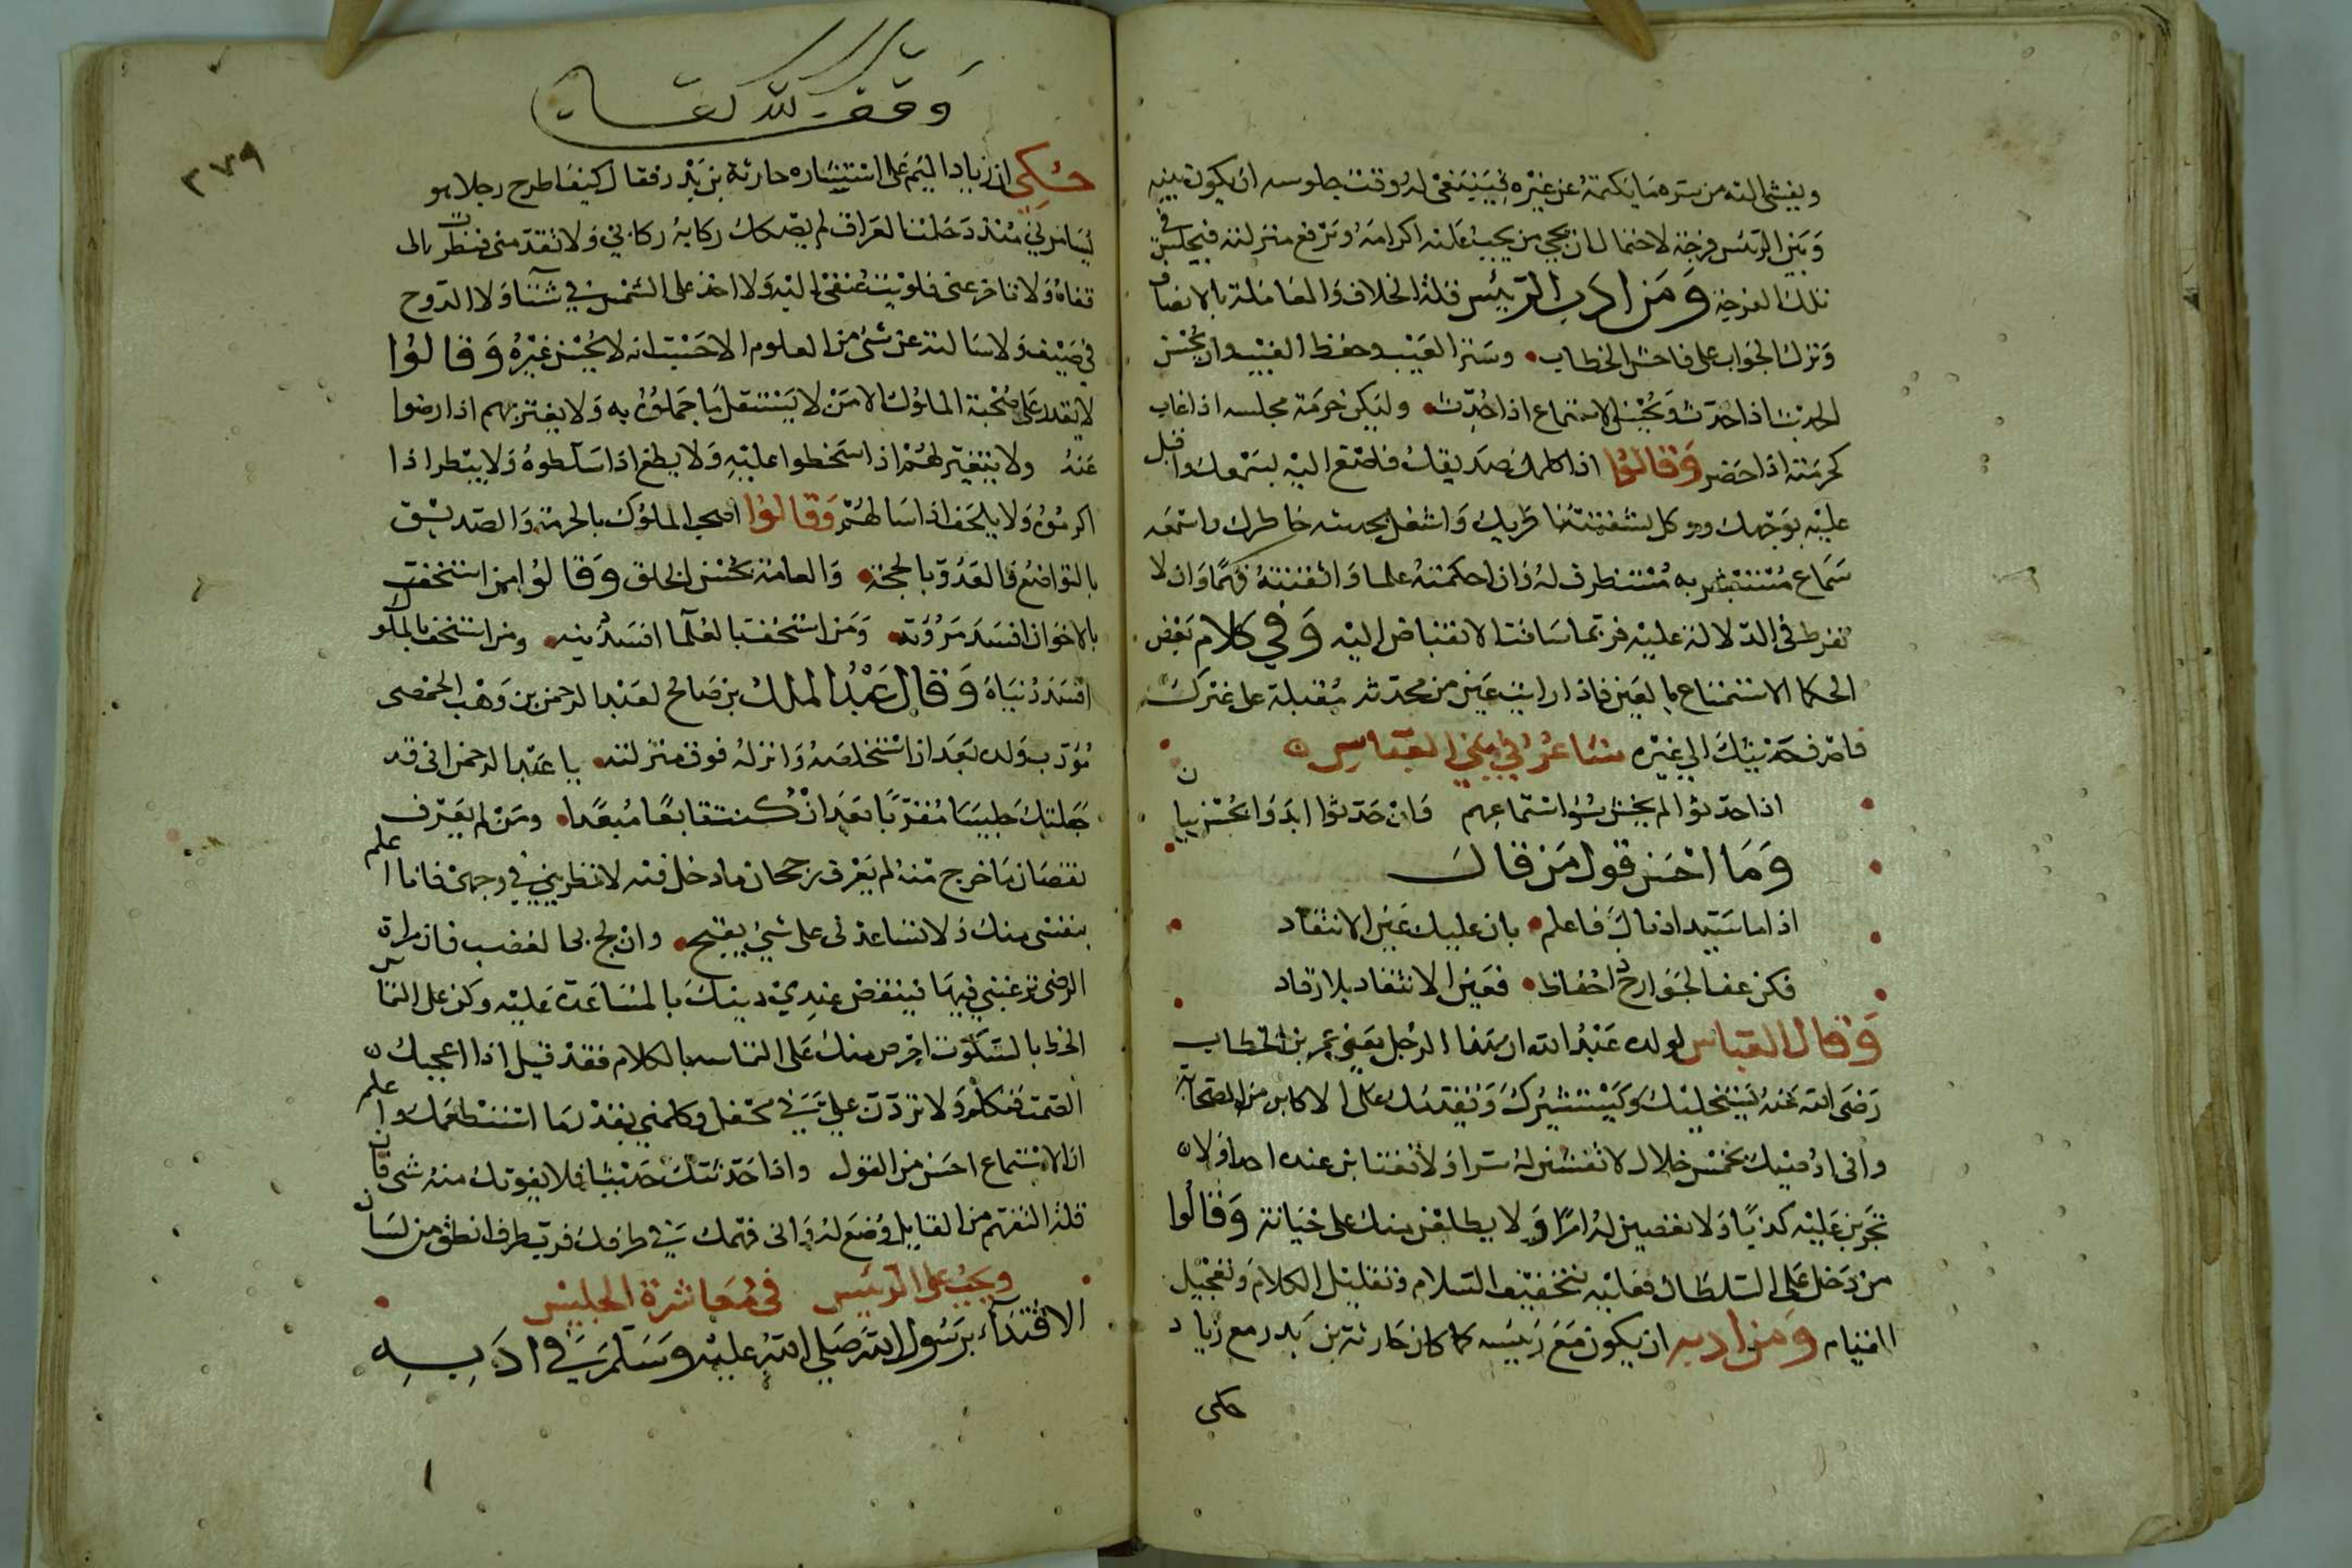 ويفشى اليه من سره ما يكتمه عن غيره فينبغى له وقت جلوسه ان يكون بينه
وبين الرئيس فرجة لاحتمال ان يجى من يجب عليه اكرامه وترفع منزلته فيجلس فى
تلك الفرجة ومن ادب الرئيس قلة الخلاف والمعاملة بالانصاف
وترك الجواب على فاحش الخطاب وستر العيب وحفظ الغيب وان يحسن
الحديث اذا حدث ويحسن الاستماع اذا حُدّث وليكن حرمة مجلسه اذا غاب
كحرمته اذا حضر وقالوا اذا كلمك صديقك فاصغ اليه بسمعك واقبل
عليه بوجهك ووكل بشفتيه ناظريك واشغل بحديثه خاطرك واسمعه
سماع مستبشر به مستطرف له وان احكمته علما واتقنته فهما وان لا
تفرط فى الدلالة عليه فربما سافت الانقباض اليه وفي كلام بعض
الحكما الاستمتاع بالعين فاذا رايت عين من محدثه مقبلة على غيرك
فاصرف حديثك الى غيره شاعر في بني العباس
اذا حدثوا لم يخش سوء استماعهم وان حدثوا ابدوا بحسن بيان
وما احسن قول من قال
اذا ما سيد ادناك فاعلم بان عليك عين الانتقاد
فكن عف الجوارح ذا حفاظ فعين الانتقاد بلا رقاد
وقال العباس لولده عبد الله ان هذا الرجل يعني عمر بن الخطاب
رضى الله عنه يستخليك ويستشيرك ويقدمك على الاكابر من الصحابة
وانى اوصيك بخمس خلال لا تفشين له سرا ولا تغتابن عنده احدا ولا
تجرين عليه كذبا ولا تعصين له امرا ولا يطلعن منك على خيانة وقالوا
من دخل على السلطان فعليه بتخفيف السلام وتقليل الكلام وتعجيل
القيام ومن ادبه ان يكون مع رئيسه كما كان حارثة بن بدر مع زياد
حكى
وقف لله تعالى
٣٧٩
حكي ان زيادا ليم على استشاره حارثة بن بدر فقال كيف اطرح رجلا هو
يسايرني منذ دخلت العراق لم يصكك ركابه ركابي ولا تقدمنى فنظرت الى
قفاه ولا تاخر عنى فلويت عنقى اليه ولا اخذ على الشمس في شتآ ولا الروح
في صيف ولا سالته عن شئ من العلوم الا حسبت انه لا يحسن غيره وقالوا
لا يقدر على صحبة الملوك الا من لا يستقل بما حملوه به ولا يغتر بهم اذا رضوا
عنه ولا يتغير لهم اذا سخطوا عليه ولا يطغ اذا سلطوه ولا يبطر اذا
اكرموه ولا يلحف اذا سالهم وقالوا اصحب الملوك بالحرمة والصديق
بالتواضع والعدو بالحجة والعامة بحسن الخلق وقالوا من استخف
بالاخوان افسد مروته ومن استخف بالعلما افسد دينه ومن استخف بالملوك
افسد دنياه وقال عبد الملك بن صالح لعبد الرحمن بن وهب الحمصى
مؤدب ولده بعد ان استخلصه وانزله فوق منزلته يا عبد الرحمن انى قد
جعلتك جليسا مقربا بعد ان كنت تابعا مبعدا ومن لم يعرف
نقصان ما خرج منه لم يعرف رجحان ما دخل فيه لا تطريني في وجهى فانا اعلم
بنفسى منك ولا تساعدنى على شئ يقبح وان لج بى الغضب فان مرارة
الرضى ترغبني فيها فينقض عندي دينك بالمساعدة عليه وكن على التماس
الحظ بالسكوت احرص منك على التماسه بالكلام فقد قيل اذا اعجبك
الصمت فتكلم ولا تردن علي في محفل وكلمني بقدر ما استنطقتك واعلم
ان الاستماع احسن من القول واذا حدثتك حديثا فلا يفوتك منه شى فان
قلة التفهم من القايل وضع له وارنى فهمك في طرفك فرب طرف انطق من لسان
ويجب على الرئيس فى معاشرة الجليس
الاقتدآء برسول الله صلى الله عليه وسلم في ادبه